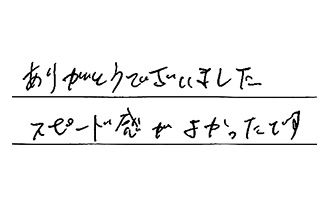 ありがとうございました
スピード感がよかったです